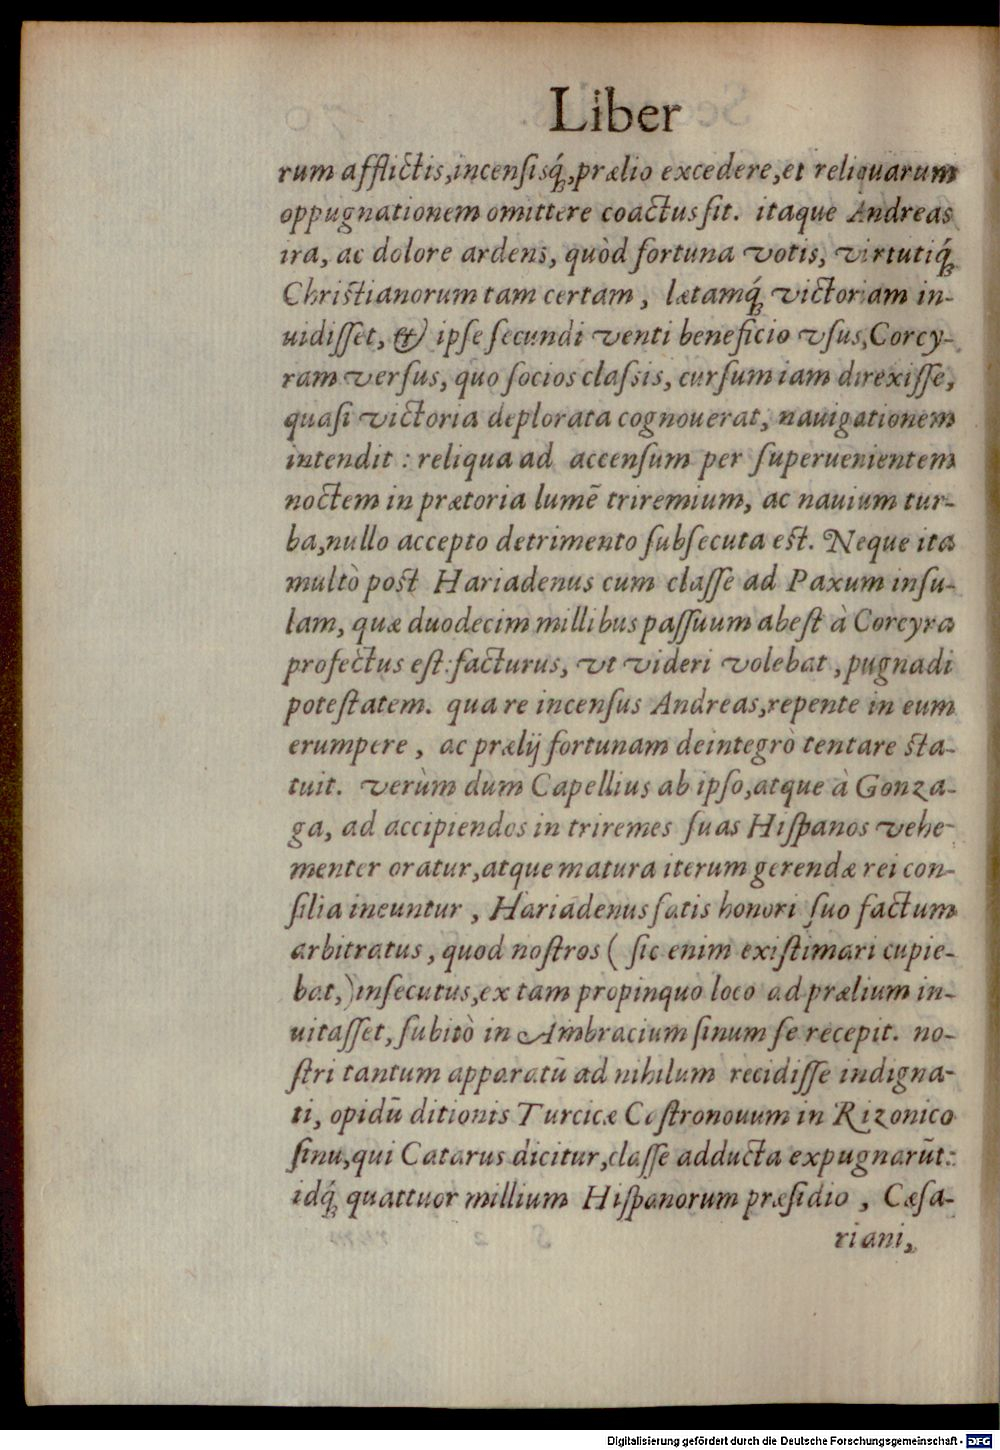 Liber
rum afflictis, incensisq́;, prælio excedere, et reliquarum
oppugnationem omittere coactus sit. itaque Andreas
ira, ac dolore ardens, quòd fortuna votis, virtutiq́;
Christianorum tam certam, lætamq́; victoriam in-
uidisset, & ipse secundi venti beneficio vsus, Corcy-
ram versus, quo socios classis, cursum iam direxisse,
quasi victoria deplorata cognouerat, nauigationem
intendit : reliqua ad accensum per superuenientem
noctem in prætoria lumē triremium, ac nauium tur-
ba, nullo accepto detrimento subsecuta est. Neque ita
multò post Hariadenus cum classe ad Paxum insu-
lam, quæ duodecim millibus passuum abest à Corcyra
profectus est: facturus, vt videri volebat, pugnādi
potestatem. qua re incensus Andreas, repente in eum
erumpere, ac prælij fortunam deintegrò tentare sta-
tuit. verùm dum Capellius ab ipso, atque à Gonza-
ga, ad accipiendos in triremes suas Hispanos vehe-
menter oratur, atque matura iterum gerendæ rei con-
silia ineuntur, Hariadenus satis honori suo factum
arbitratus, quod nostros ( sic enim existimari cupie-
bat,) insecutus, ex tam propinquo loco ad prælium in-
uitasset, subitò in Ambracium sinum se recepit. no-
stri tantum apparatū ad nihilum recidisse indigna-
ti, opidū ditionis Turcicæ Castronouum in Rizonico
sinu, qui Catarus dicitur, classe adducta expugnarūt:
idq́; quattuor millium Hispanorum præsidio, Cæsa-
riani,
Digitalisierung gefördert durch die Deutsche Forschungsgemeinschaft - DFG